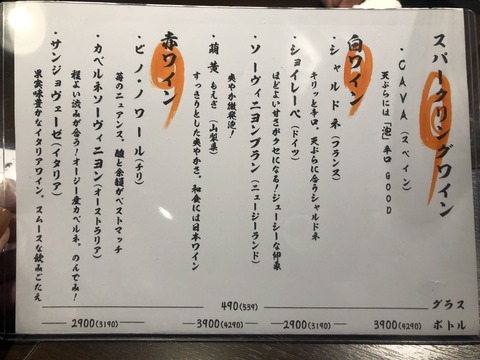 スパークリングワイン
・CAVA(スペイン)
天ぷらには「泡」辛口 GOOD
白ワイン
・シャルドネ(フランス)
キリッと辛口。天ぷらに合うシャルドネ
・ショイレーベ(ドイツ)
ほどよい甘さがクセになる!ジューシーな印象
・ソーヴィニヨンブラン(ニュージーランド)
爽やか微発泡!
・萌黄 もえぎ(山梨県)
すっきりとした爽やかさ。和食には日本ワイン
赤ワイン
・ピノ・ノワール(チリ)
苺のニュアンス。酸と余韻がベストマッチ
・カベルネソーヴィニヨン(オーストラリア)
程よい渋みが合う!オージー産カベルネ。のんでみ!
・サンジョヴェーゼ(イタリア)
果実味豊かなイタリアワイン。スムースな飲みごたえ
グラス 490(539)
ボトル 3900(4290) 2900(3190) 3900(4290) 2900(3190)